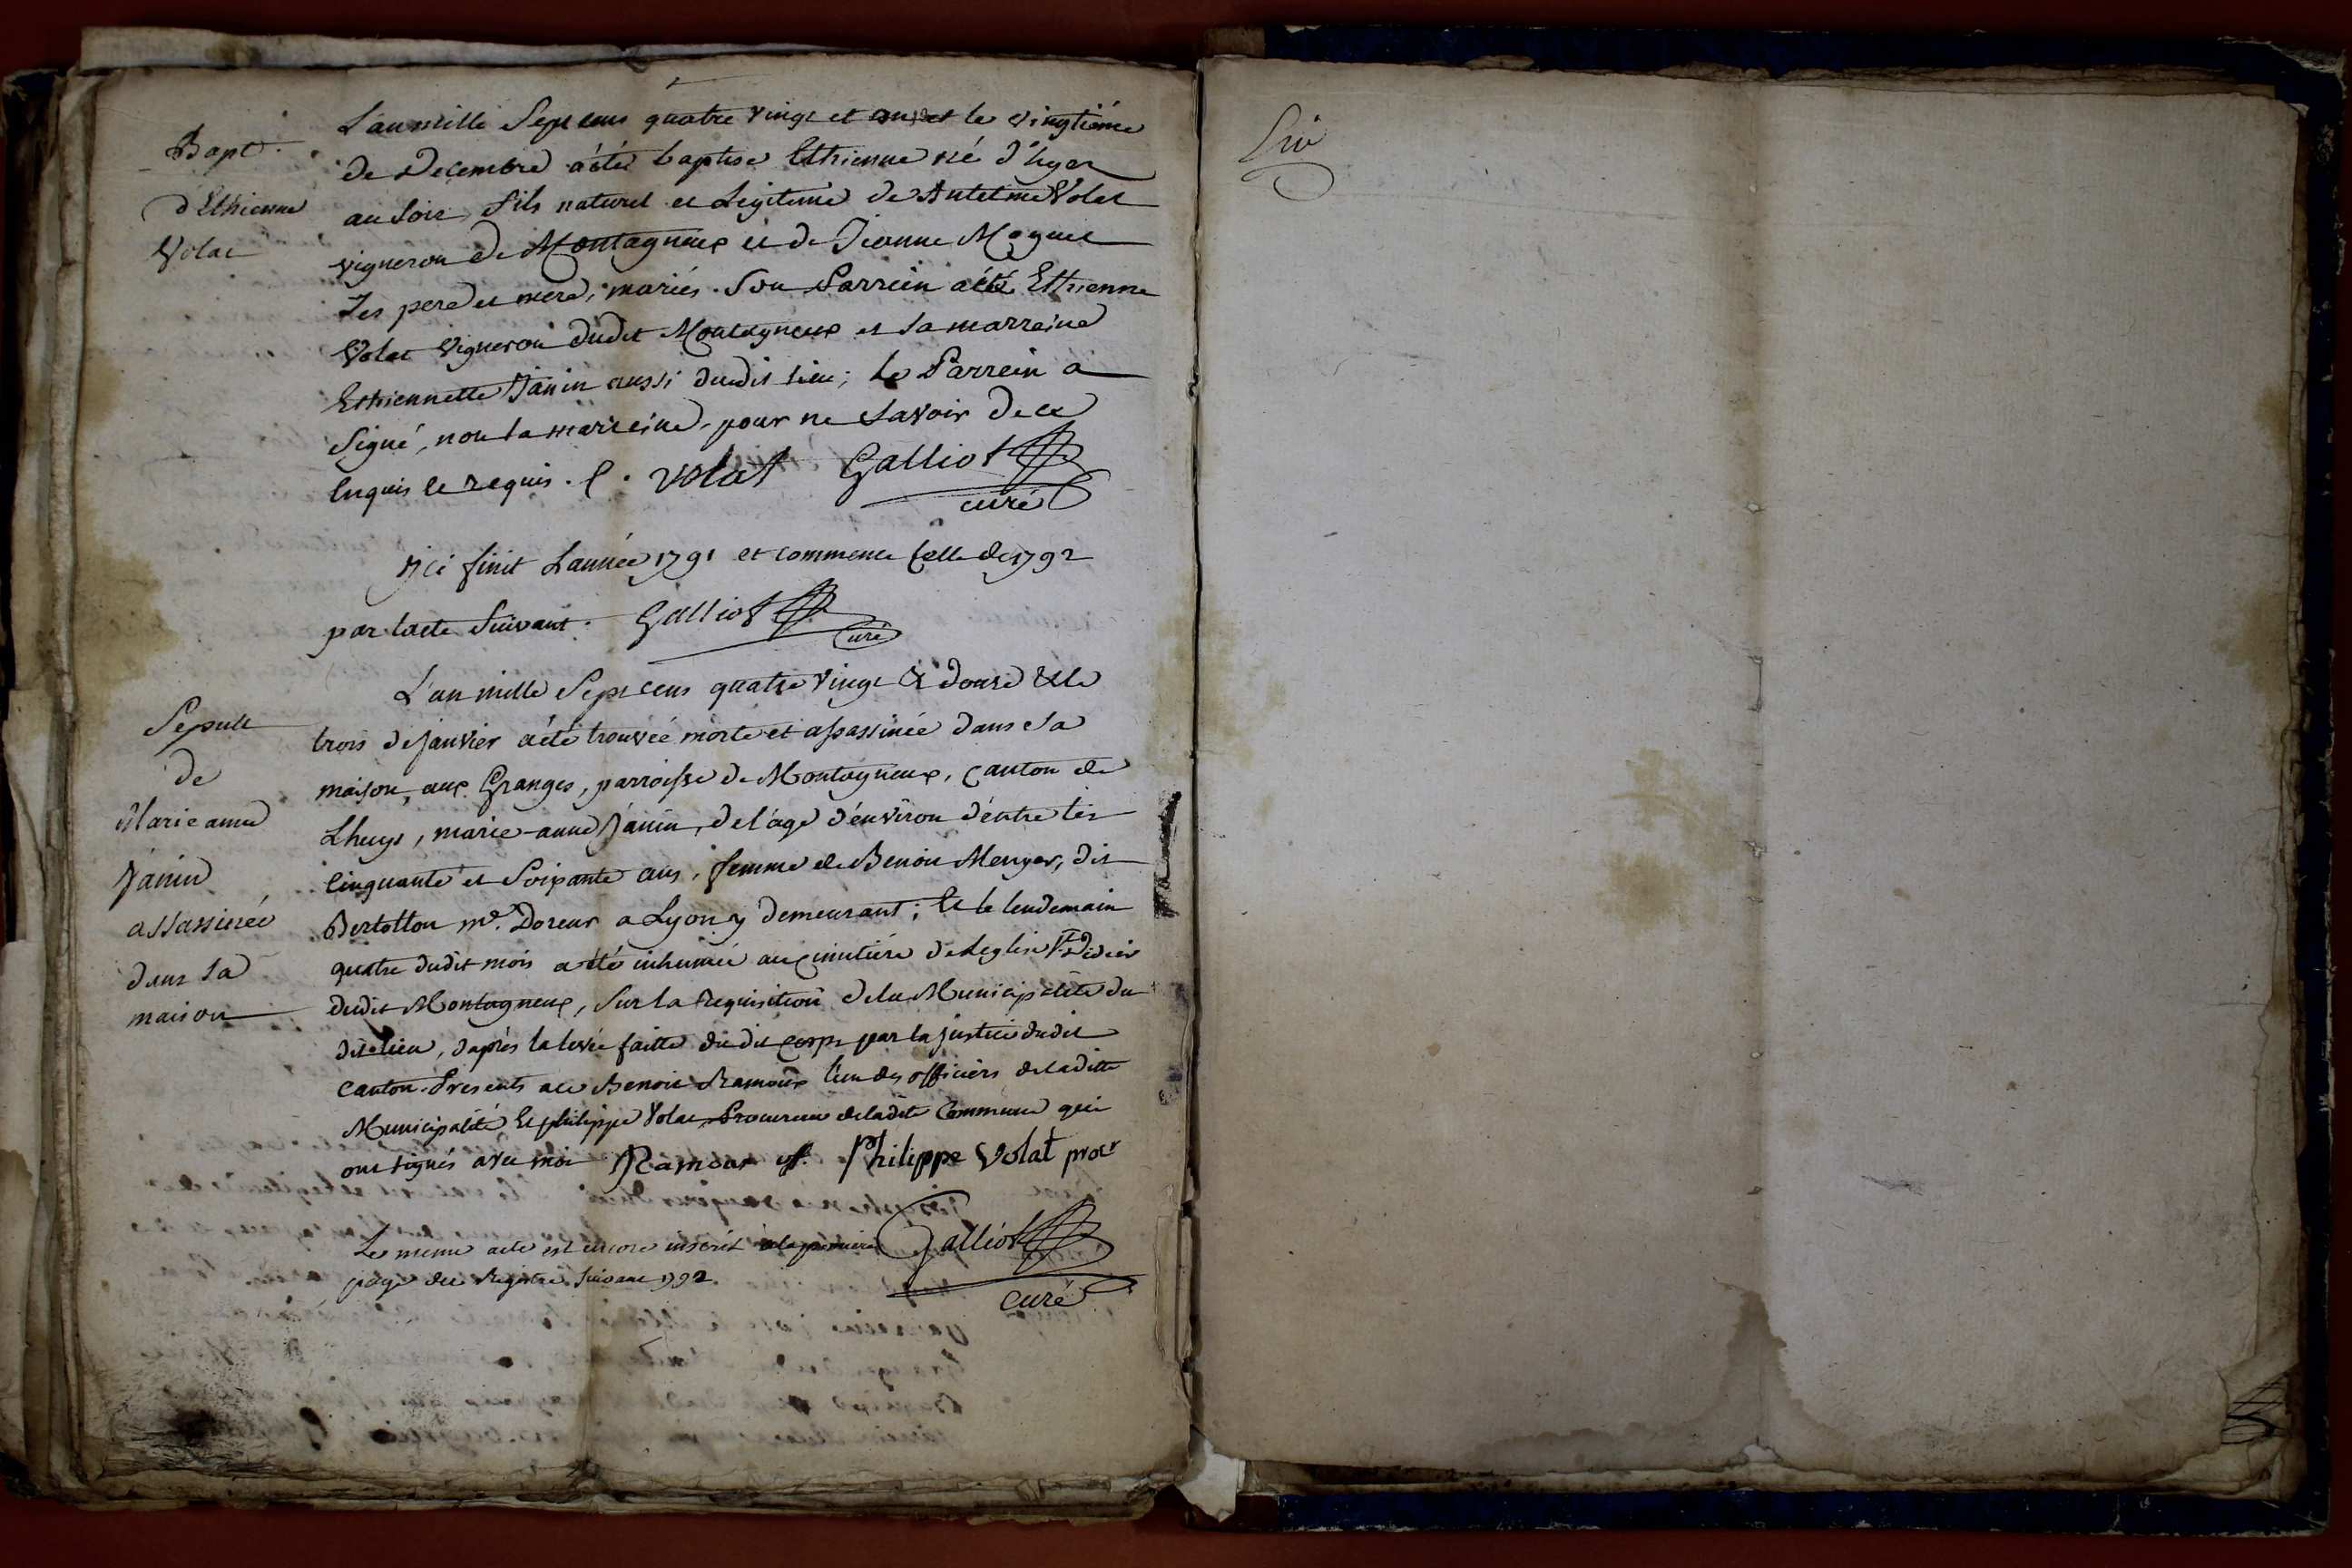 Bapt.
d'Ethienne
Volat
L'an mille Sept cens quatre vingt et onze et le vingtiéme
de Decembre a été baptisé Ethienne né d'hyer
au soir fils naturel et Légitime de Antelme Volat
vigneron de Montagneux et de Jeanne Moguet
ses pere et mere, mariés. Son Parrein a été Ethienne
Volat Vigneron dudit Montagneux et sa marreine
Ethiennette Janin aussi dudit lieu; le Parrein a
signé, non la marreine, pour ne savoir de ce
enquis et requis. E. volat Galliot
curé
ici finit L'année 1791 et commence celle de 1792
par l'acte suivant. Galliot
Curé
Sepult
de
Marie anne
Janin
assassinée
dans sa
maison
L'an mille Sept cens quatre vingt & douse & le
trois de janvier a été trouvée morte et assassinée dans sa
maison, aux Granges, parroisse de Montagneux, canton de
Lhuys, marie-anne Janin, de l'age d'environ d'entre les
cinquante et soixante ans, femme de Benoit Menger, dit
Bertollon me. Doreur a Lyon y demeurant; et le lendemain
quatre dudit mois a été inhumée au cimitiére de l'eglise St Didier
dudit Montagneux, sur la requisition de la Municipalité du
dit lieu, d'après la levée faitte du dit corps par la justice dudit
canton. Presents a ce Benoit Ramoux l'un des officiers de la ditte
Municipalité Et philippe Volat Procureur de la dite Commune qui
ont signés avec moi Ramoux off. Philippe Volat procr
Galliot
curé
Le meme acte est encore inscrit à la premiere
page du Registre suivant 1792.